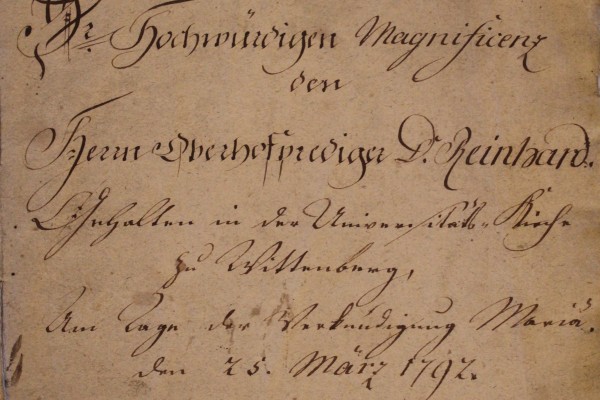 Sr. Hochwürdigen Magnificenz
den
Herrn Oberhofprediger D. Reinhard.
Gehalten in der Universitäts-Kirche
zu Wittenberg,
Am Tage der Verkündigung Mariä.
den 25. März 1792.